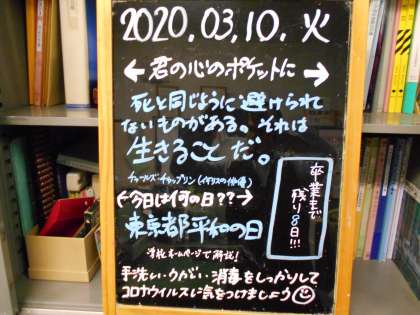 2020.03.10.火
←君の心のポケットに→
死と同じように避けられ
ないものがある。それは
生きることだ。
チャールズ・チャップリン(イギリスの俳優)
←今日は何の日??→
東京都平和の日
学校ホームページで解説!
卒業まで
残り8日!!!
手洗い・うがい・消毒をしっかりして
コロナウイルスに気をつけましょう☺